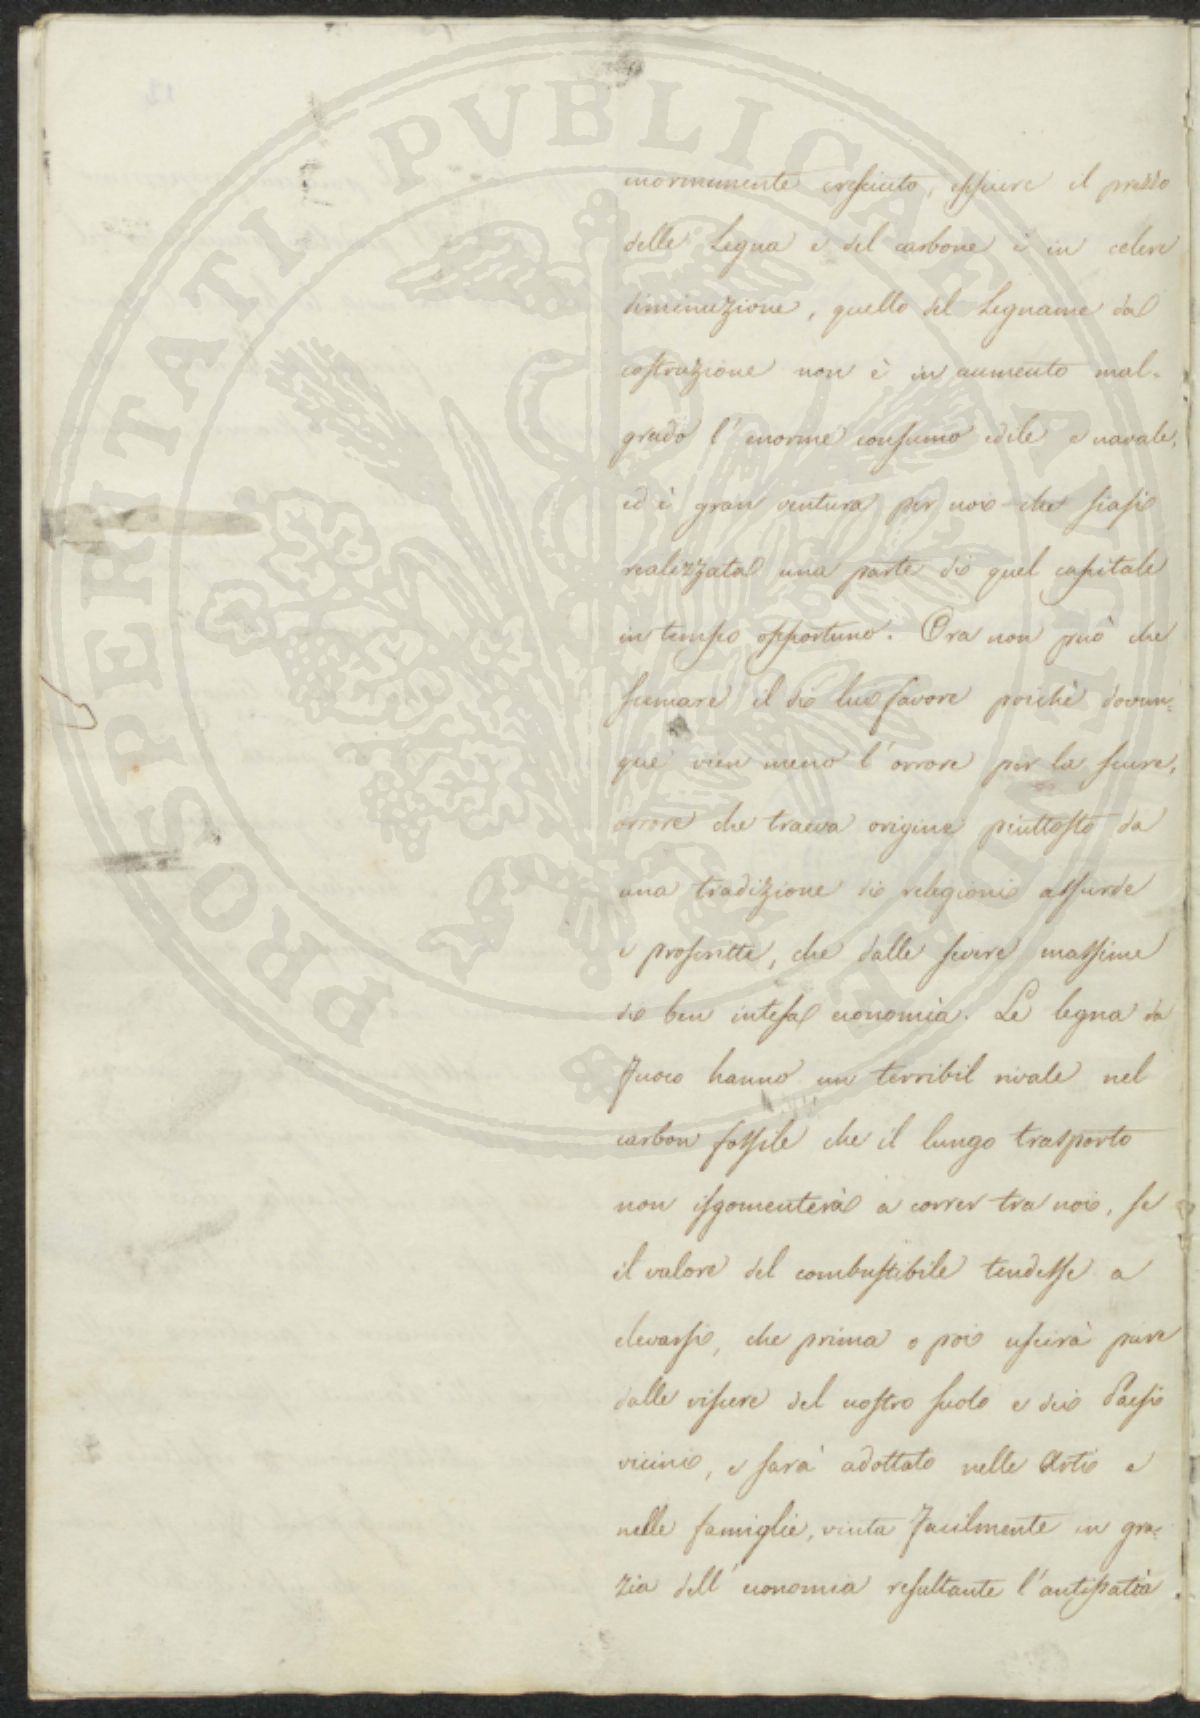 PROSPERITATI PVBLICAE AVGENDAE
enormemente cresciuto, eppure il prezzo
delle Legna e del carbone è in celere
diminuzione, quello del Legname da
costruzione non è in aumento mal-
grado l'enorme consumo edile e navale,
ed è gran ventura per noi che siasi
realizzata una parte di quel capitale
in tempo opportuno. Ora non può che
scemare il di lui favore poichè dovun-
que vien meno l'orrore per la scure,
orrore che traeva origine piuttosto da
una tradizione di religioni assurde
e proscritte, che dalle severe massime
di ben intesa economia. Le legna da
fuoco hanno un terribil rivale nel
carbon fossile che il lungo trasporto
non isgomenterà a correr tra noi, se
il valore del combustibile tendesse a
elevarsi, che prima o poi uscirà pure
dalle viscere del nostro suolo e dei Paesi
vicini, e sarà adottato nelle Arti e
nelle famiglie, vinta facilmente in gra-
zia dell'economia resultante l'antipatia